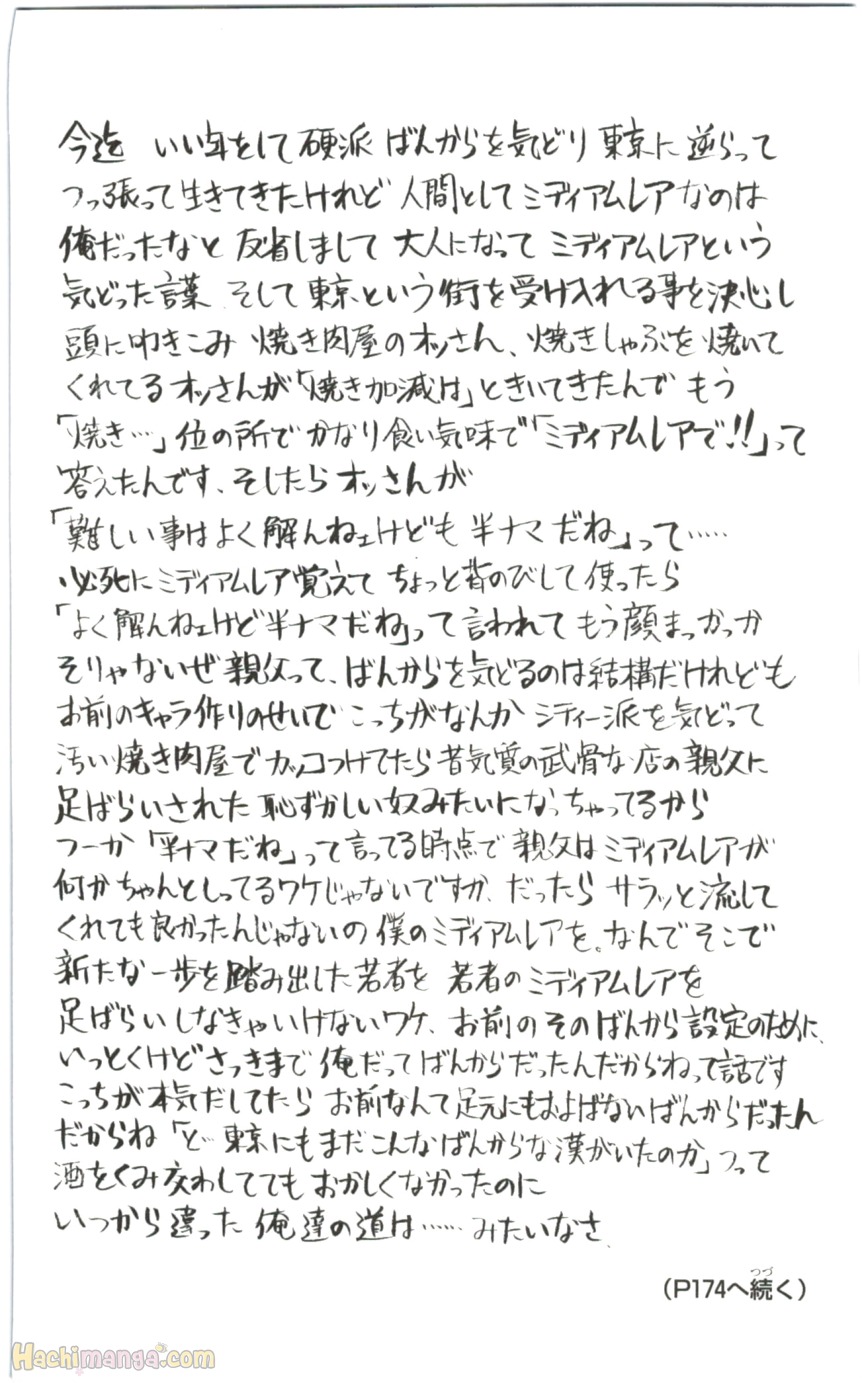 今迄 いい年をして硬派 ばんからを気どり 東京に逆らって
つっ張って生きてきたけれど 人間としてミディアムレアなのは
俺だったなと 反省しまして 大人になって ミディアムレアという
気どった言葉 そして東京という街を受け入れる事を決心し
頭に叩きこみ 焼き肉屋のオッさん、焼きしゃぶを焼いて
くれてるオッさんが「焼き加減は」ときいてきたんで もう
「焼き…」位の所でかなり食い気味で「ミディアムレアで!!」って
答えたんです、そしたらオッさんが
「難しい事はよく解んねェけども 半ナマだね」って……
必死にミディアムレア覚えて ちょっと背のびして使ったら
「よく解んねェけど半ナマだね」って言われて もう顔まっかっか
そりゃないぜ親父って、ばんからを気どるのは結構だけれども
お前のキャラ作りのせいで こっちがなんか シティー派を気どって
汚い焼き肉屋でカッコつけてたら昔気質の武骨な店の親父に
足ばらいされた 恥ずかしい奴みたいになっちゃってるから
つーか 「半ナマだね」って言ってる時点で 親父はミディアムレアが
何かちゃんとしってるワケじゃないですか、だったら サラッと流して
くれても良かったんじゃないの 僕のミディアムレアを。なんでそこで
新たな一歩を踏み出した若者を 若者のミディアムレアを
足ばらいしなきゃいけないワケ、お前のそのばんから設定のために、
いっとくけどさっきまで 俺だってばんからだったんだからねって話です
こっちが本気だしてたら お前なんて足元にもおよばないばんからだったん
だからね「と… 東京にもまだこんなばんからな漢がいたのか」つって
酒をくみ交わしててもおかしくなかったのに
いつから違った 俺達の道は……みたいなさ
つづ
(P174へ続く)
Hachimanga.com